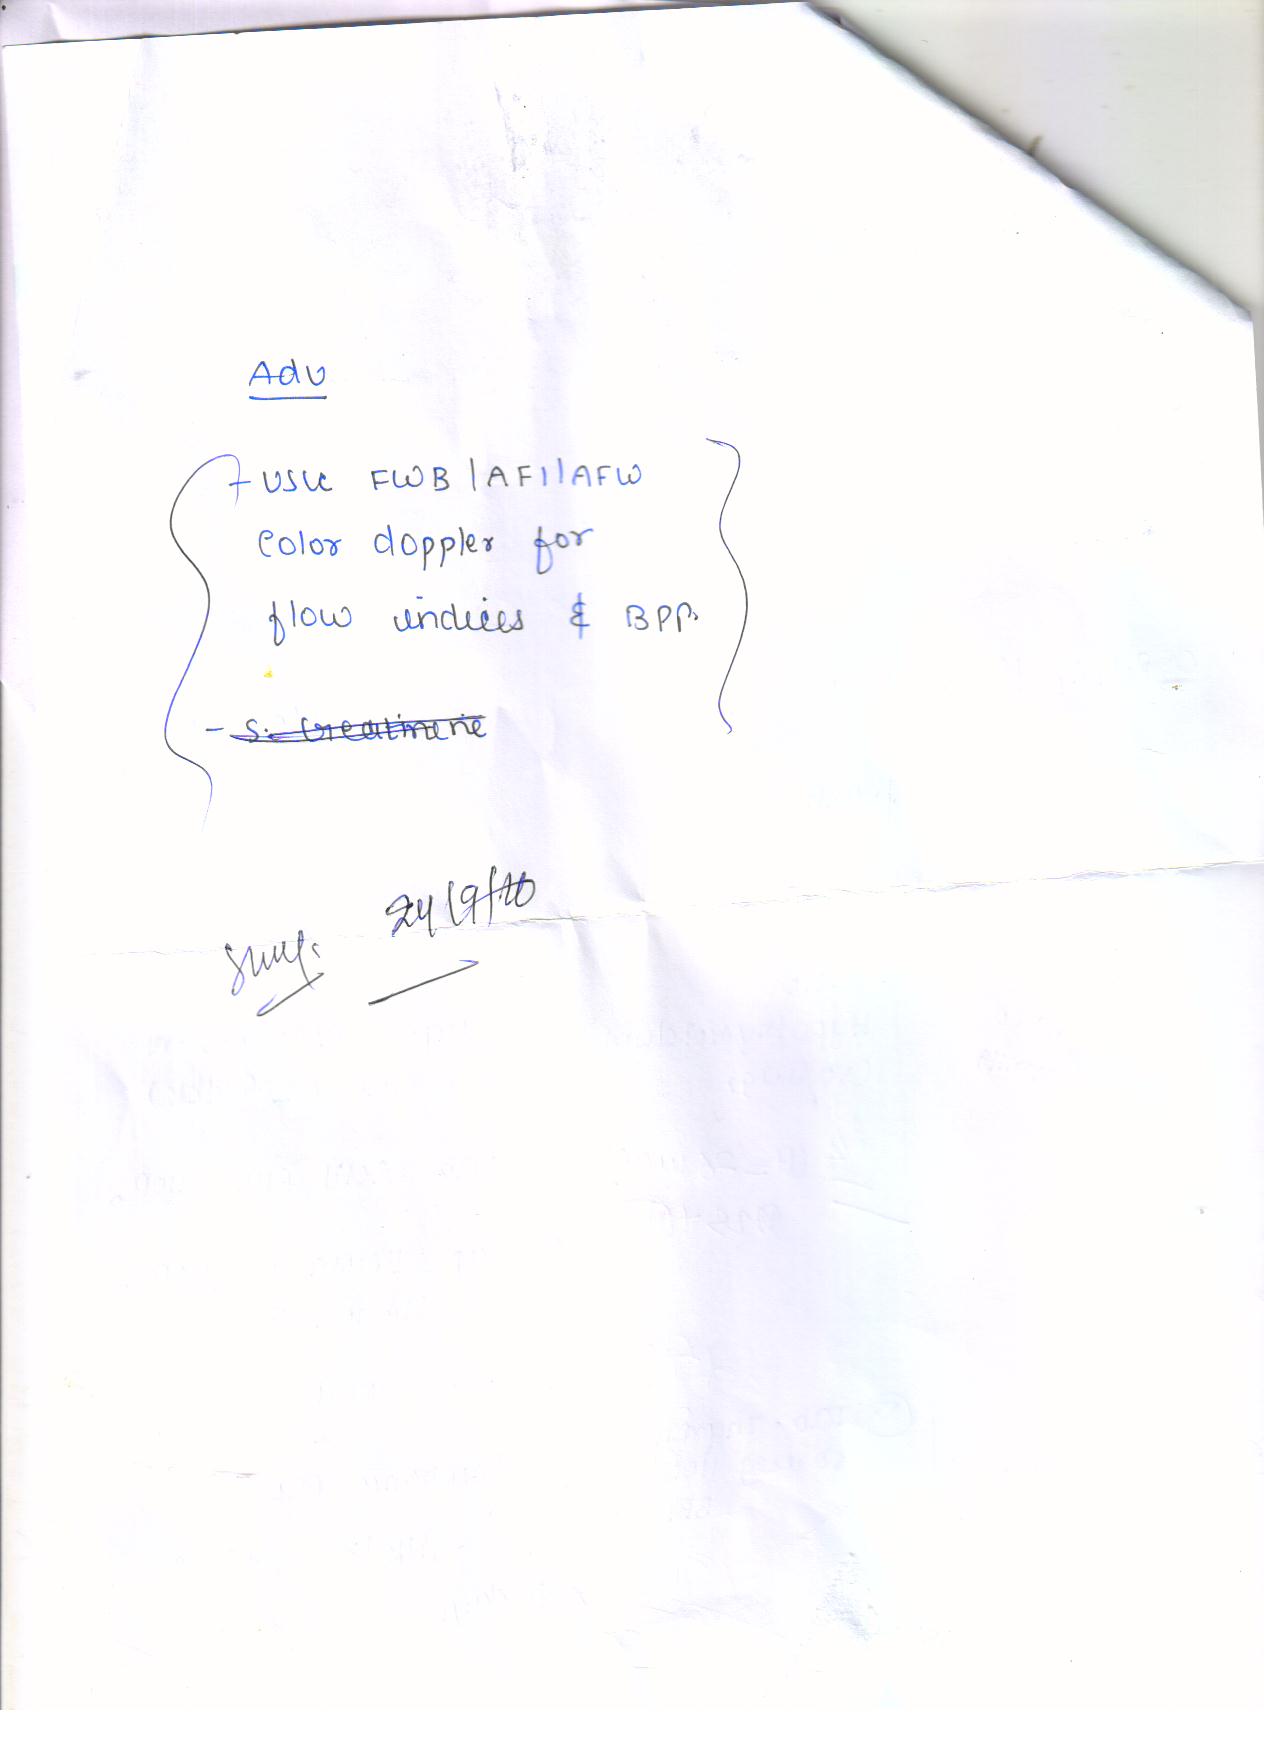 Adv
- USG FWB | AFI | AFW
Color doppler for
flow indices & BPP.
- S. treatment
24/9/